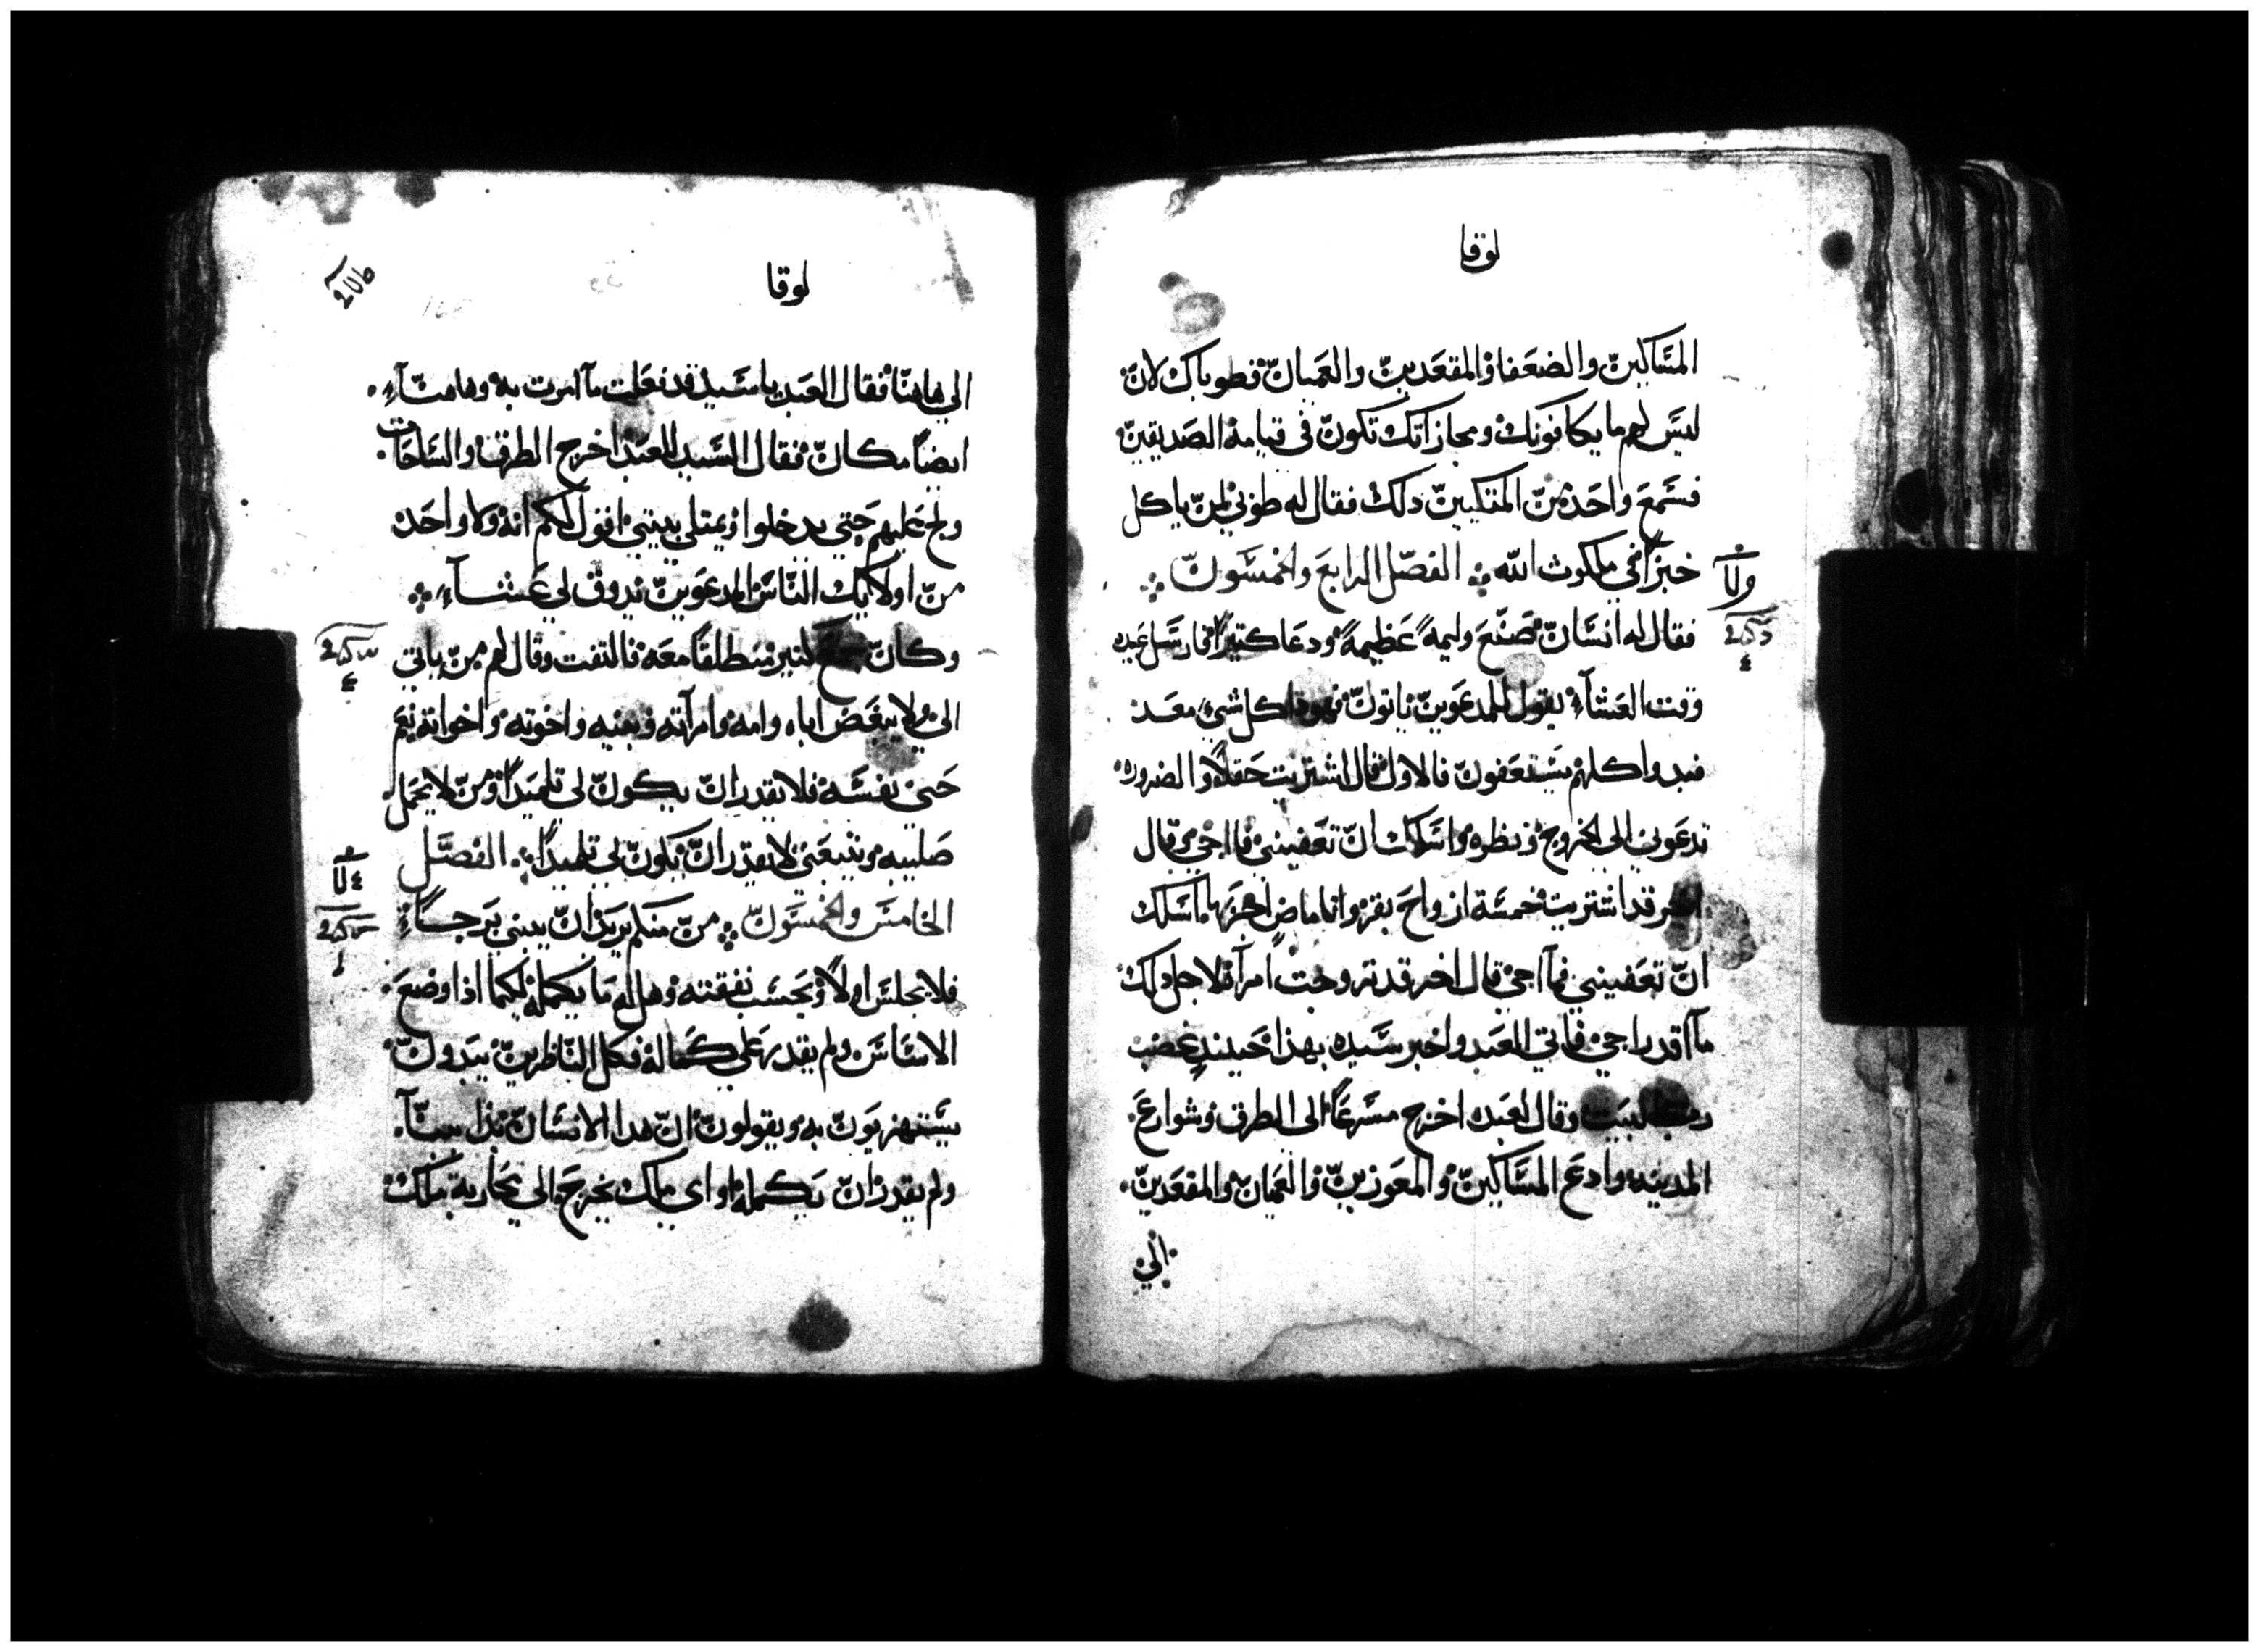 لوقا
المسَاكينّ والضعَفا والمقعَدينّ والعَميانّ فطوباك لانّ
ليسَ لهم ما يكافونك ومجازاتك تكونّ في قيامة الصَديقينّ
فسَمعَ واحَد منّ المتكيينّ دلك فقال له طوبي لمنّ ياكل
خبزاً في ملكوت الله ۞ الفصَل الرابعَ والخمسَونّ ۞
فقال له انسَانّ صَنعَ وليمهً عَظيمهً ودعَا كتيراً فارسَل عَبده
وقت العَشآء يقول للمدعَوينّ ياتونّ فهودا كل شيء معَد
فبدوا كلهم يسَتعَفونّ فالاول قال اشتريت حَقلاً والضروره
تدعَوني الي الخروج ونظره واسَالك انّ تعَفيني فما اجي وقال
اخر قد اشتريت خمسَة ازواجَ بقر وانا ماضٍ اجربها اسَالك
انّ تعَفيني فمآ اجي قال اخر قد تزوجت امرآة فلاجل دلك
مآ اقدر اجي فاتي العَبد واخبر سَيده بهذا حَينيدٍ غضب
رب البيت وقال لعَبده اخرج مسَرعَاً الي الطرق وشوارعَ
المدينه وادعَ المسَاكينّ والمعَوزينّ والعَميانّ والمقعَدينّ
الي
لوقا
الي هاهنّا فقال العَبد يا سَيد قد فعَلت مآ امرت به وهاهنّآء
ايضاً مكانّ فقال السَيد للعَبد اخرج الطرق والسَلحَات
ولج عَليهم حَتي يدخلوا ويمتلي بيتي اقول لكم انه ولا واحَد
منّ اولايك النّاسَ المدعَوينّ يدوق لي عَشآء ۞
وكانّ جمع كتير منطلقاً معَه فالتفت وقال لهم منّ ياتي
الي ولا يبغَض اباه وامه وامرآته وبنيه واخوته واخواته نعَم
حَتي نفسَه فلا يقدر انّ يكونّ لي تلميداً ومنّ لا يحَمل
صَليبه ويتبعَني لا يقدر انّ يكونّ لي تلميداً ۞ الفصَل
الخامسَ والخمسَونّ ۞ منّ منكم يريد انّ يبني بَرجاً
فلا يجلسَ اولاً ويحَسَب نفقته وهل له ما يكمله لكيما ادا وضعَ
الاسَاسَ ولم يقدر عَلي كماله فكل النّاظرينّ يبَدونّ
يسَتهزيَونّ به ويقولونّ انّ هدا الانسَانّ بدا ببنّآ
ولم يقدر انّ يكمله او اي ملك يخرج الي محَاربة ملك